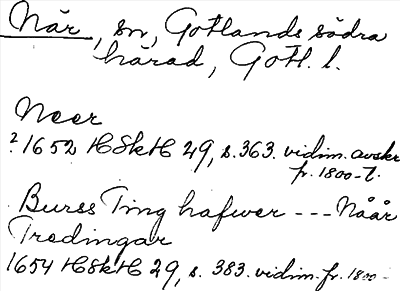 När, sn, Gotlands södra
härad, Gotl. l.
Neer
? 1652 HSkH 29, s. 363. vidim. avskr.
fr. 1800-t.
Burss Ting hafwer --- Nåår
Tredingar
1654 HSkH 29, s. 383. vidim. fr. 1800-